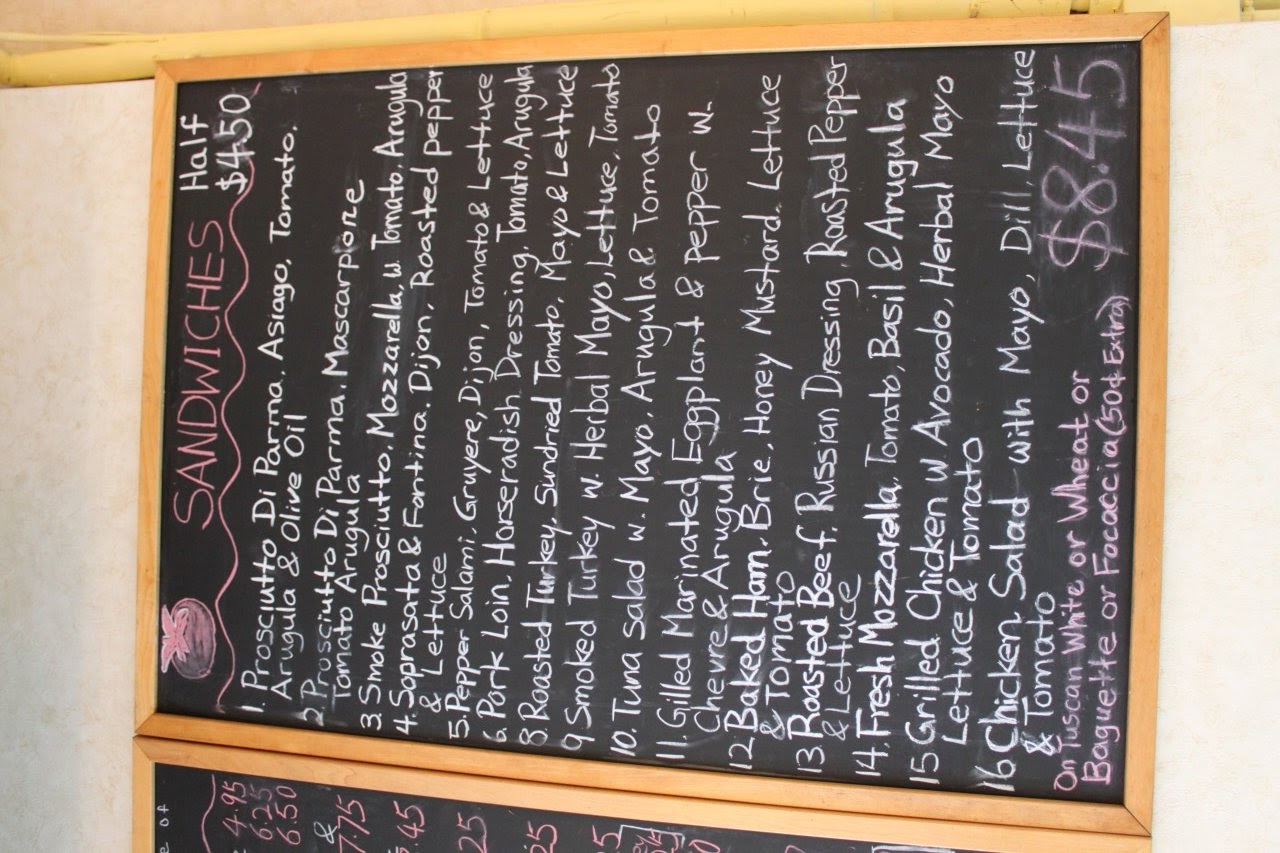 SANDWICHES Half
$4.50
1. Prosciutto Di Parma, Asiago, Tomato,
Arugula & Olive Oil
2 Prosciutto Di Parma, Mascarpone
Tomato Arugula
3 Smoke Prosciutto, Mozzarella, w. Tomato, Arugula
4. Soprasata & Fontina, Dijon, Roasted pepper
& Lettuce
5. Pepper Salami, Gruyere, Dijon, Tomato & Lettuce
6. Pork Loin, Horseradish Dressing, Tomato, Arugula
8 Roasted Turkey, Sundried Tomato, Mayo & Lettuce
9 Smoked Turkey w. Herbal Mayo, Lettuce, Tomato
10. Tuna salad w. Mayo, Arugula & Tomato
11. Gilled Marinated Eggplant & pepper w.
Chevre & Arugula
12. Baked Ham, Brie, Honey Mustard, Lettuce
& Tomato
13 Roasted Beef, Russian Dressing, Roasted Pepper
& Lettuce
14. Fresh Mozzarella, Tomato, Basil & Arugula
15 Grilled Chicken w Avocado, Herbal Mayo
Lettuce & Tomato
16 Chicken Salad with Mayo, Dill, Lettuce
& Tomato
On Tuscan White or Wheat or
Baguette or Focaccia (50¢ Extra)
$8.45
e of
4.95
6.25
6.50
&
7.75
.45
25
25